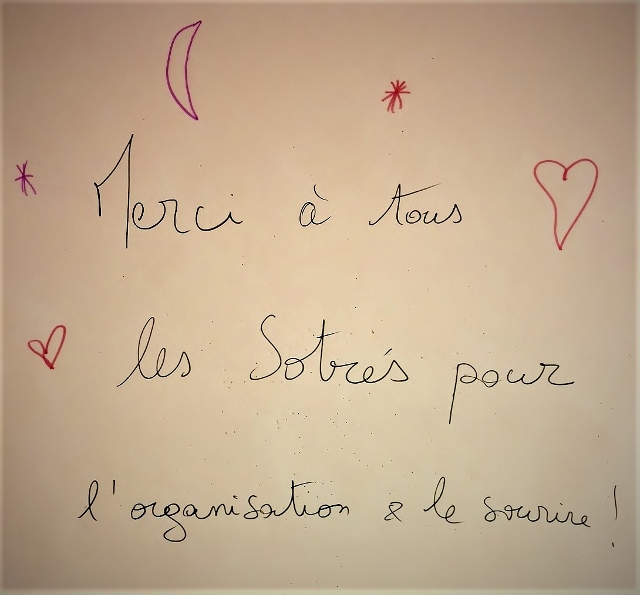 Merci à tous
les Sotrés pour
l'organisation & le sourire !